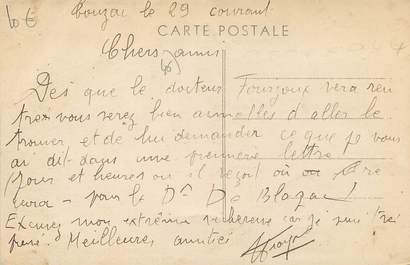 10 €
Couzac le 29 courant
CARTE POSTALE
Chers amis
Dès que le docteur Fourjoux sera ren
trer vous serez bien aimables d'aller le
trouver, et de lui demander ce que je vous
ai dit dans une première lettre
jour et heures où il reçoit où on
pour le Dr De Blazac
Excusez mon extrême car je suis très
pressé. Meilleures amitiés